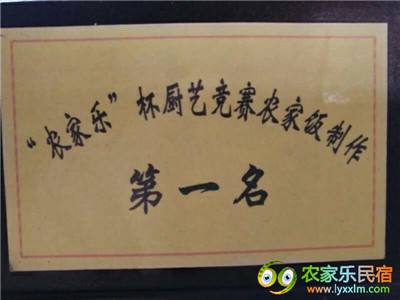 “农家乐”杯厨艺竞赛农家饭制作
第一名
农家乐民宿
www.lyxxlm.com